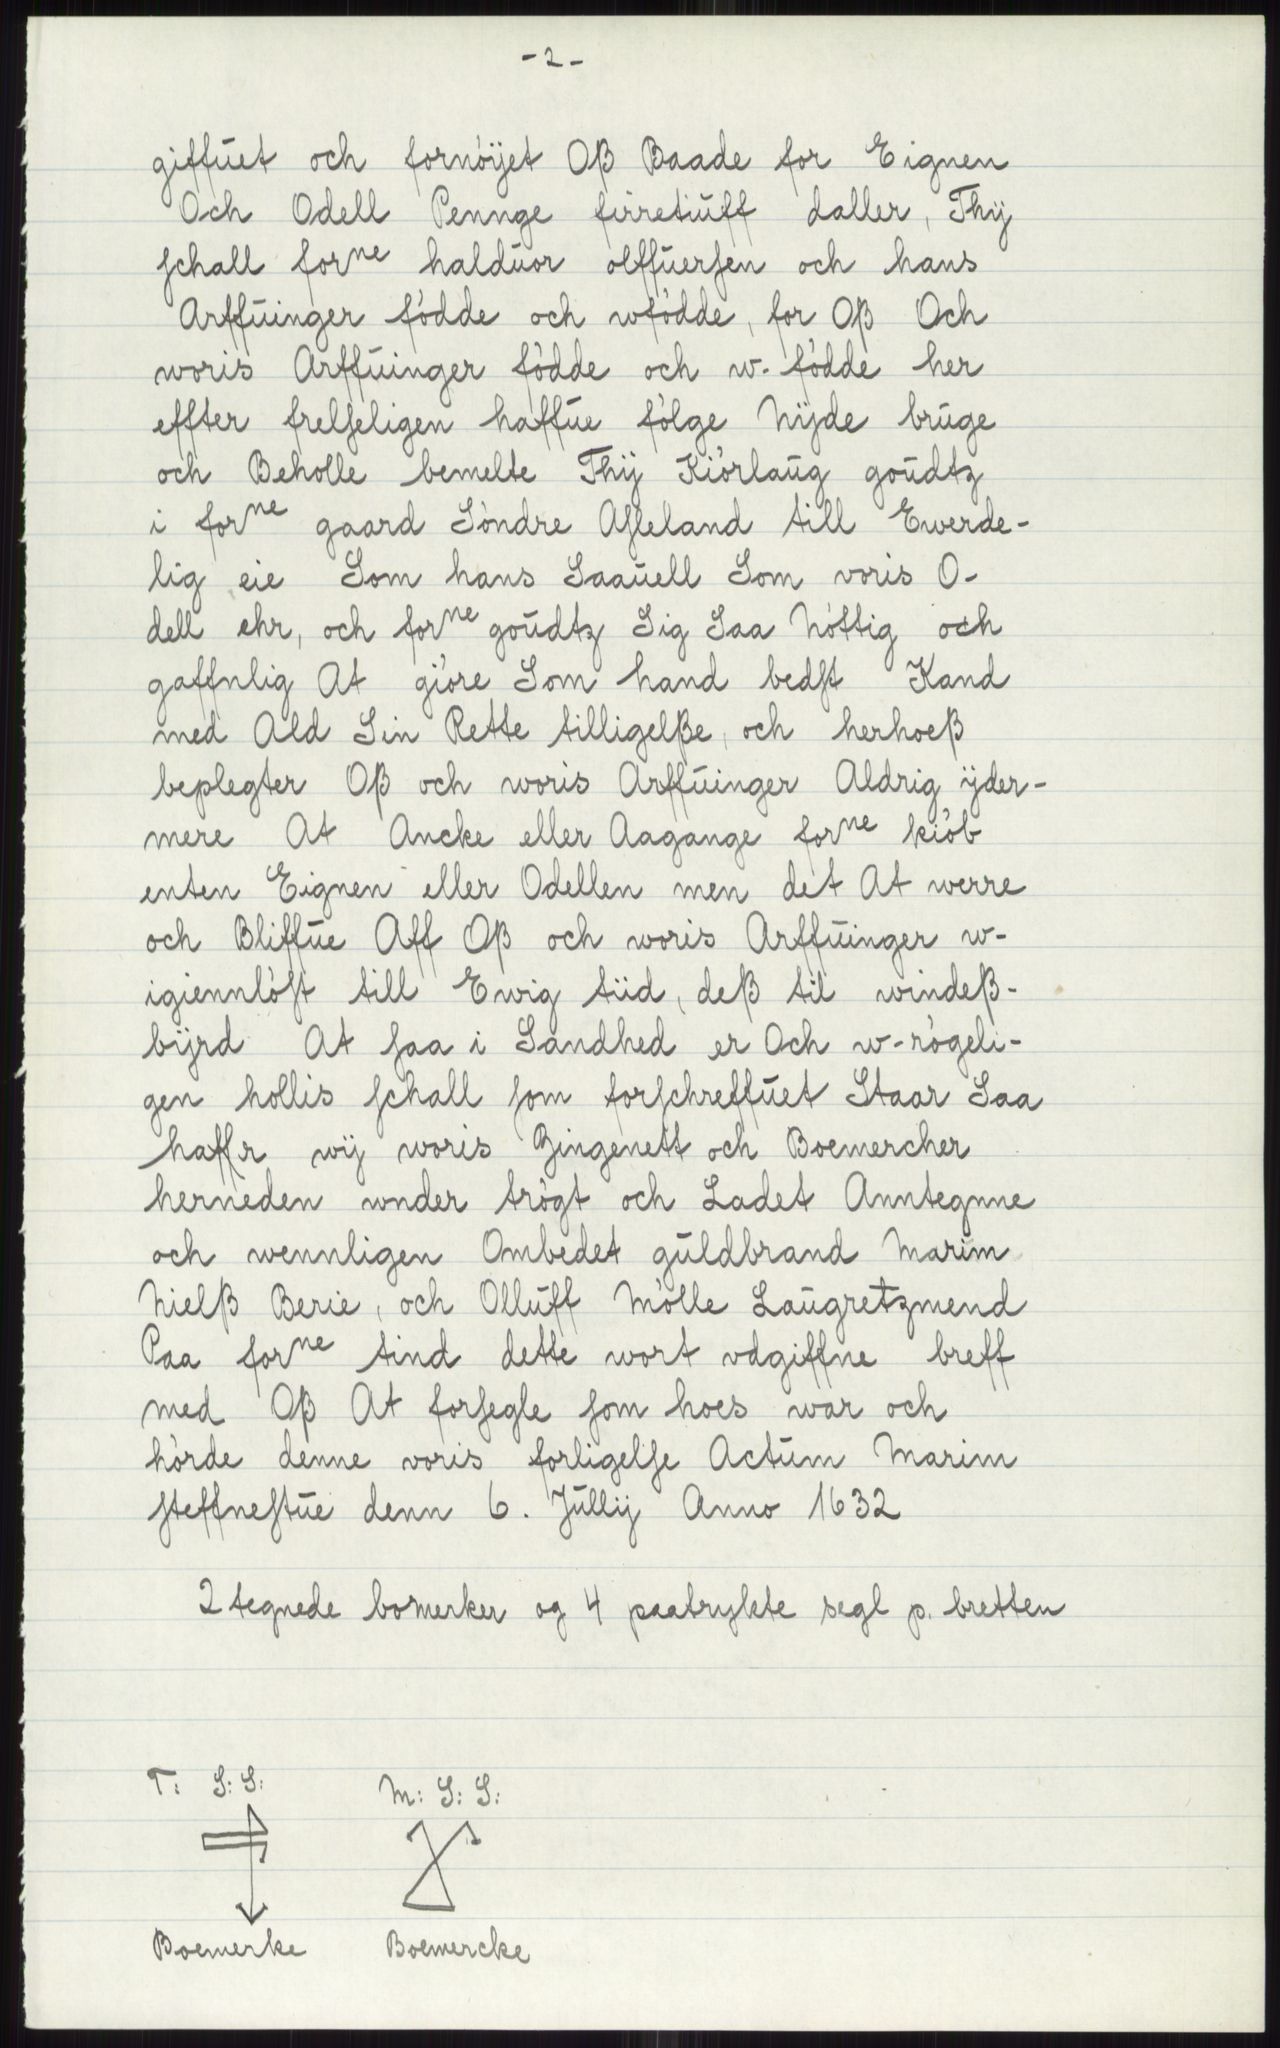 - 2 -
giffuet och fornøÿet Oß Baade for Eignen
Och Odell Pennge firretiuff daller, Thÿ
schall forne halduor olffuersen och hans
Arffuinger fødde och wfødde, for Oß Och
woris Arffuinger fødde och w-fødde her
effter frelseligen haffue følge Nÿde bruge
och Beholle bemelte Thÿ Kiørlaug goudtz
i forne gaard Søndre Asleland till Ewerde-
lig eie Som hans Saauell Som voris O-
dell ehr, och forne goudtz Sig Saa Nøttig och
gaffnlig At giøre Som hand bedst Kand
med Ald Sin Rette tilligelße, och herhoeß
beplegter Oß och woris Arffuinger Aldrig ÿder-
mere At Ancke eller Aagange forne kiøb
enten Eignen eller Odellen men det At werre
och Bliffue Aff Oß och woris Arffuinger w-
igiennløst till Ewig tiid, deß til windeß-
bÿrd At saa i Sandhed er Och w-røgeli-
gen hollis schall som forschreffuet Staar Saa
haffr wÿ woris Zingenett och Boemercher
herneden wnder trøgt och Ladet Anntegnne
och wennligen Ombedet guldbrand Marim
Nielß Berie, och Olluff Mølle Laugretzmend
Paa forne tind dette wort vdgiffne breff
med Oß At forsegle som hoes war och
hørde denne voris forligelse Actum Marim
steffnestue denn 6. Jullij Anno 1632
2 tegnede bomerker og 4 paatrykte segl p. bretten
T: S: S: M: S: S:
Boemerke Boemercke